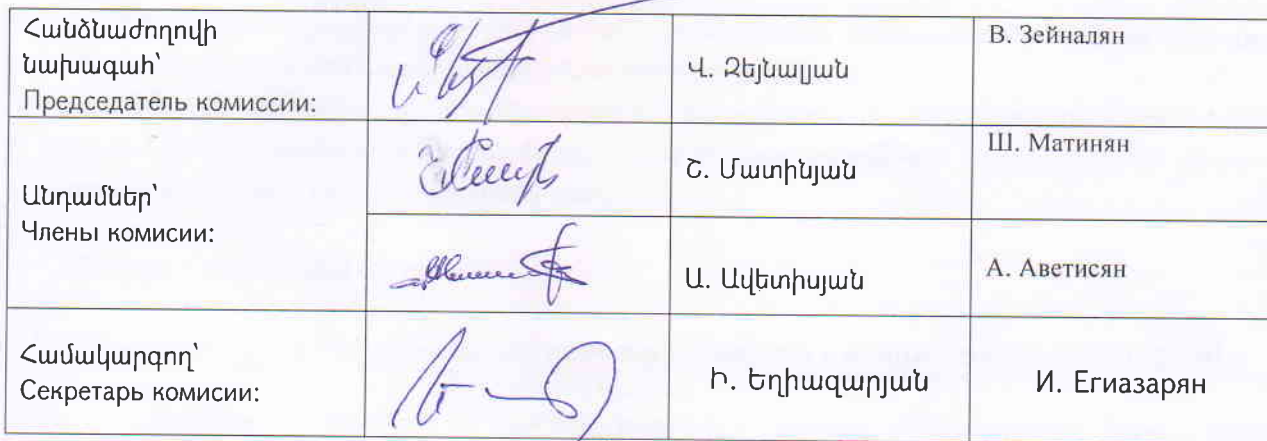 Հանձնաժողովի
նախագահ՝
Председатель комиссии:
Վ. Զեյնալյան
В. Зейналян
Անդամներ՝
Члены комисии:
Շ. Մատինյան
Ш. Матинян
Ա. Ավետիսյան
А. Аветисян
Համակարգող՝
Секретарь комисии:
Ի. Եղիազարյան
И. Егиазарян